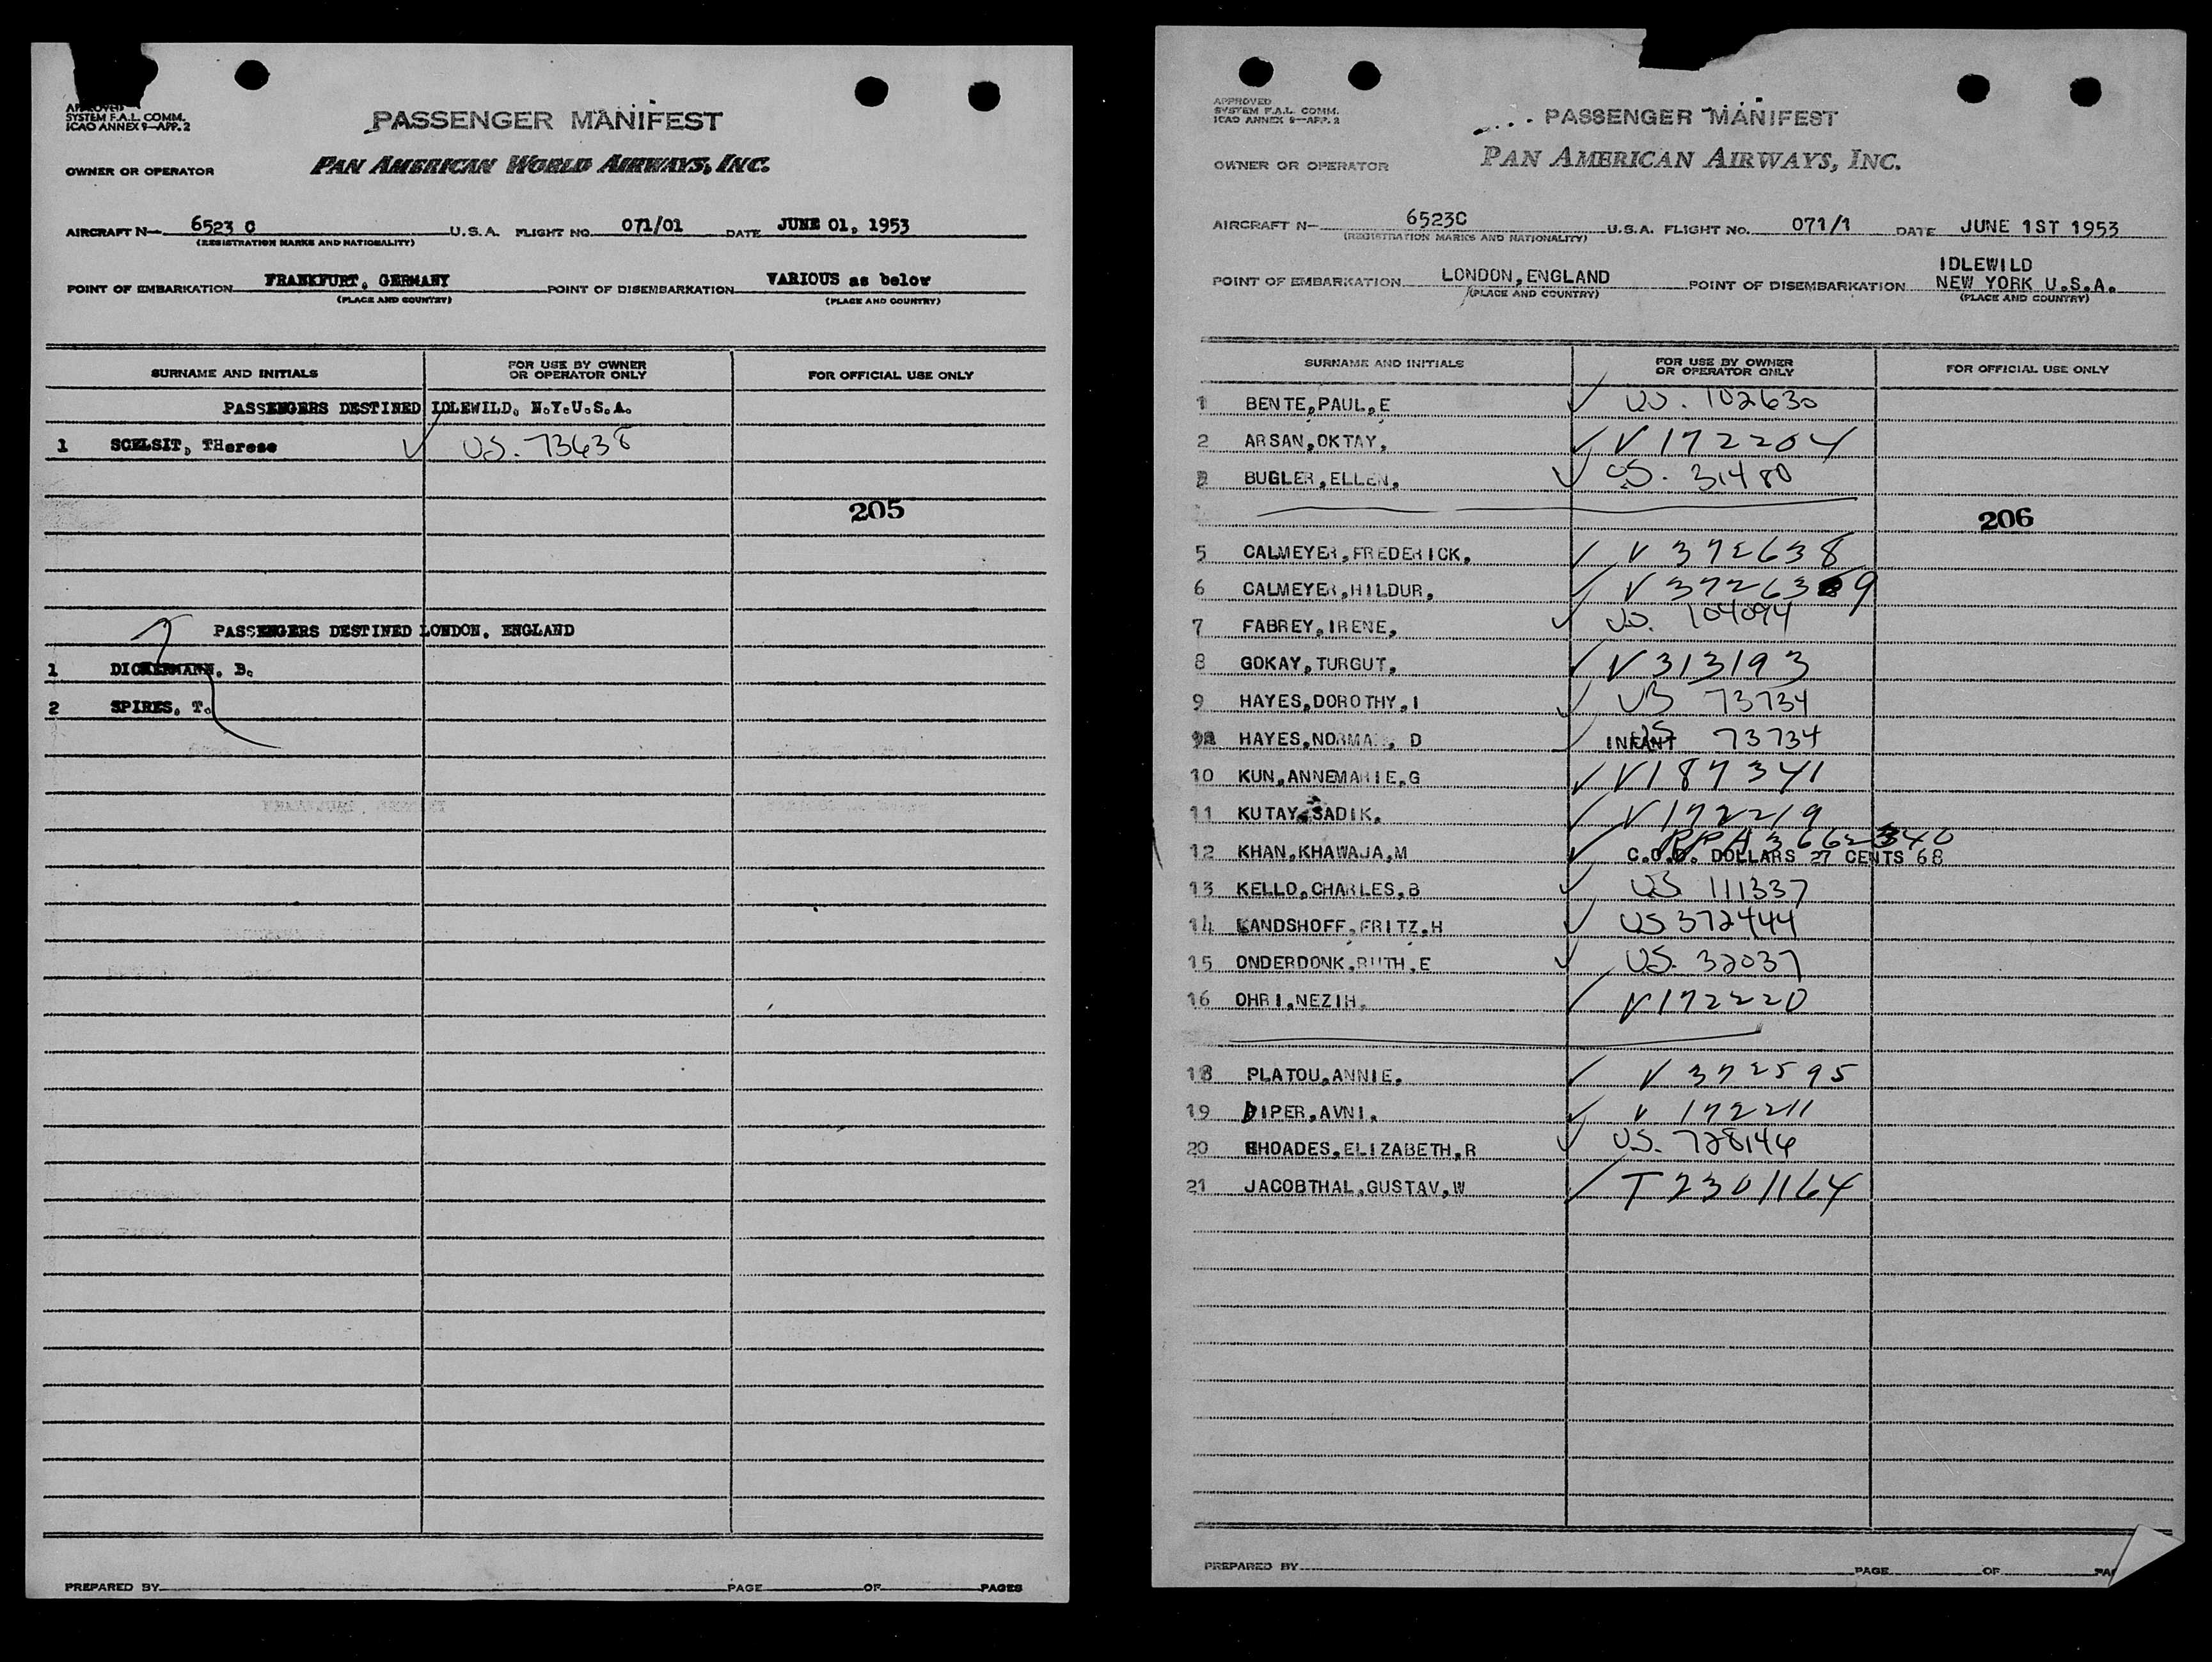 APPROVED
SYSTEM F.A.L. COMM.
ICAO ANNEX 9—APP. 2
PASSENGER MANIFEST
OWNER OR OPERATOR PAN AMERICAN WORLD AIRWAYS, INC.
AIRCRAFT N— 6523 C U.S.A. FLIGHT NO. 071/01 DATE JUNE 01, 1953
(REGISTRATION MARKS AND NATIONALITY)
POINT OF EMBARKATION FRANKFURT, GERMANY POINT OF DISEMBARKATION VARIOUS as below
(PLACE AND COUNTRY) (PLACE AND COUNTRY)
SURNAME AND INITIALS FOR USE BY OWNER OR OPERATOR ONLY FOR OFFICIAL USE ONLY
PASSENGERS DESTINED IDLEWILD, N.Y.U.S.A.
1 SCELSIT, THerese US. 73638
205
PASSENGERS DESTINED LONDON, ENGLAND
1 DICKERMANN, B.
2 SPIRES, T.
PREPARED BY PAGE OF PAGES
APPROVED
SYSTEM F.A.L. COMM.
ICAO ANNEX 9—APP. 2
PASSENGER MANIFEST
OWNER OR OPERATOR PAN AMERICAN AIRWAYS, INC.
AIRCRAFT N— 6523C U.S.A. FLIGHT NO. 071/1 DATE JUNE 1ST 1953
(REGISTRATION MARKS AND NATIONALITY)
POINT OF EMBARKATION LONDON, ENGLAND POINT OF DISEMBARKATION IDLEWILD NEW YORK U.S.A.
(PLACE AND COUNTRY) (PLACE AND COUNTRY)
SURNAME AND INITIALS FOR USE BY OWNER OR OPERATOR ONLY FOR OFFICIAL USE ONLY
1 BENTE,PAUL,E US. 102630
2 ARSAN,OKTAY, V 172204
BUGLER,ELLEN, US. 31480
206
5 CALMEYER,FREDERICK, V 372638
6 CALMEYER,HILDUR, V 372639
7 FABREY,IRENE, US. 104094
8 GOKAY,TURGUT, V 313193
9 HAYES,DOROTHY,I US 73734
9A HAYES,NORMAN, D INFANT US 73734
10 KUN,ANNEMARIE,G V 187341
11 KUTAY,SADIK, V 172219
12 KHAN,KHAWAJA,M C.O.D. DOLLARS 27 CENTS 68
13 KELLO,CHARLES,B US 111337
14 LANDSHOFF,FRITZ,H US 372444
15 ONDERDONK,RUTH,E US. 32037
16 OHRI,NEZIH, V 172220
18 PLATOU,ANNIE, V 372595
19 DIPER,AVNI, V 172211
20 RHOADES,ELIZABETH,R US. 728146
21 JACOBTHAL,GUSTAV,W T 2301164
PREPARED BY PAGE OF